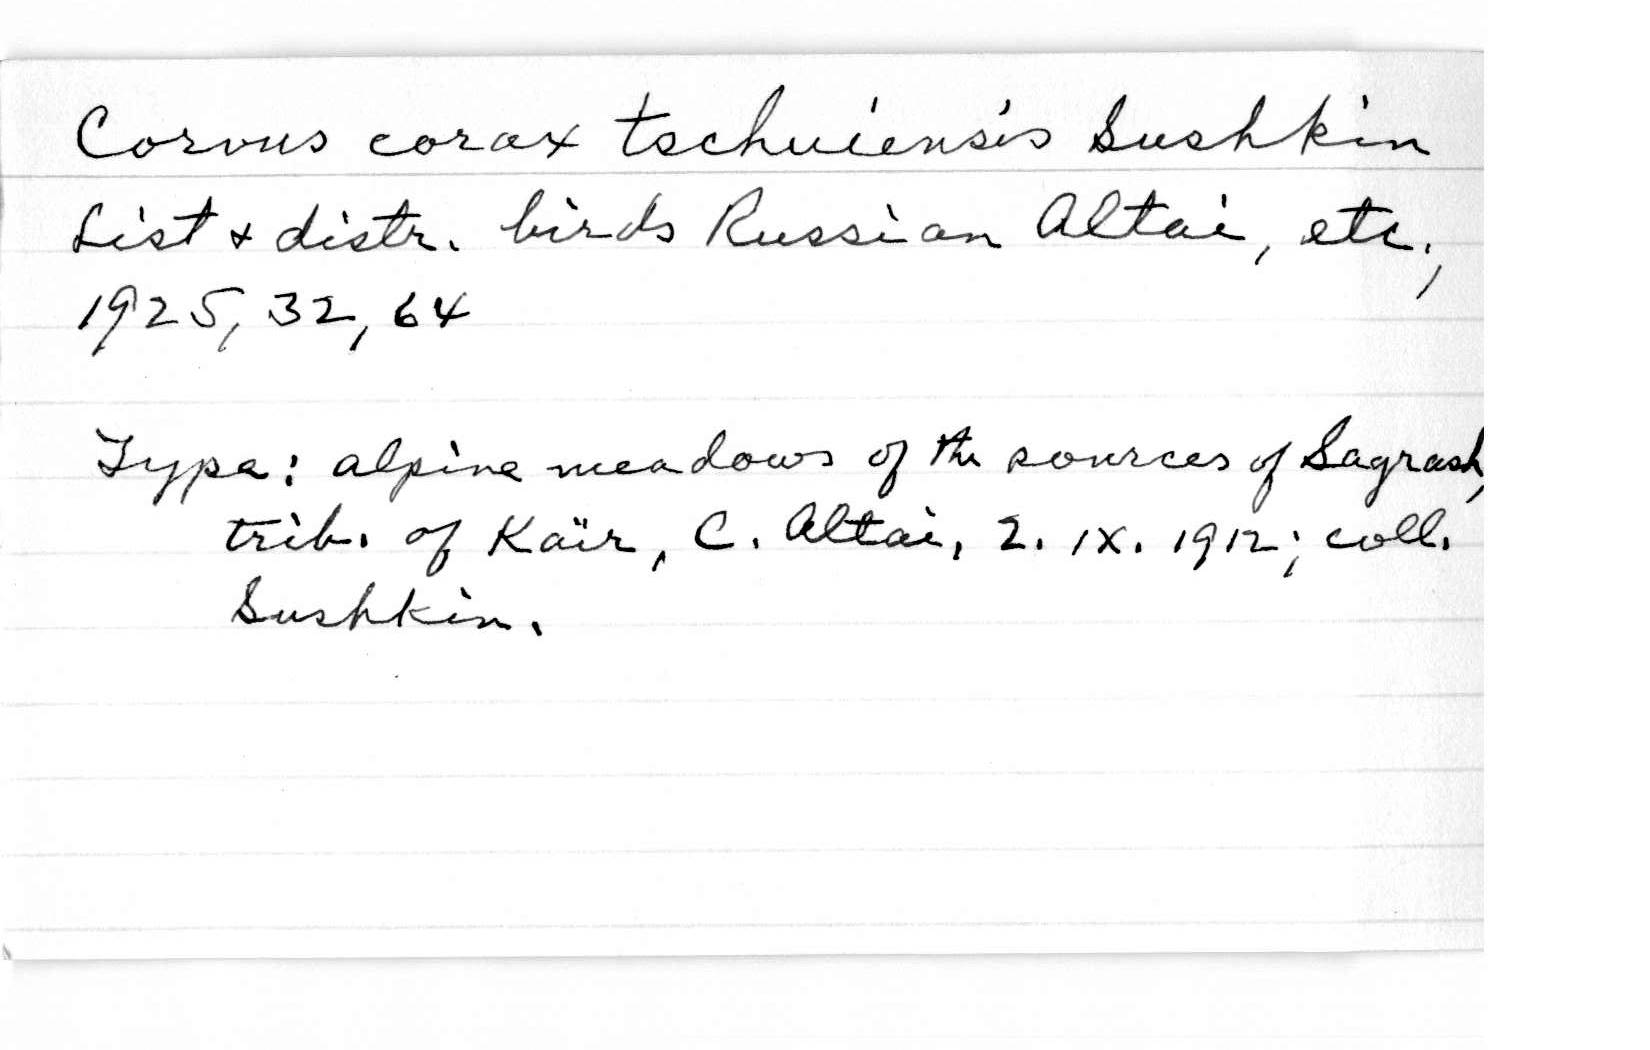 Corvus corax tschuiensis Sushkin
List & distr. birds Russian Altai, etc.,
1925, 32, 64
Type: alpine meadows of the sources of Sagrash,
trib. of Kaïr, C. Altai, 2. IX. 1912; coll.
Sushkin.